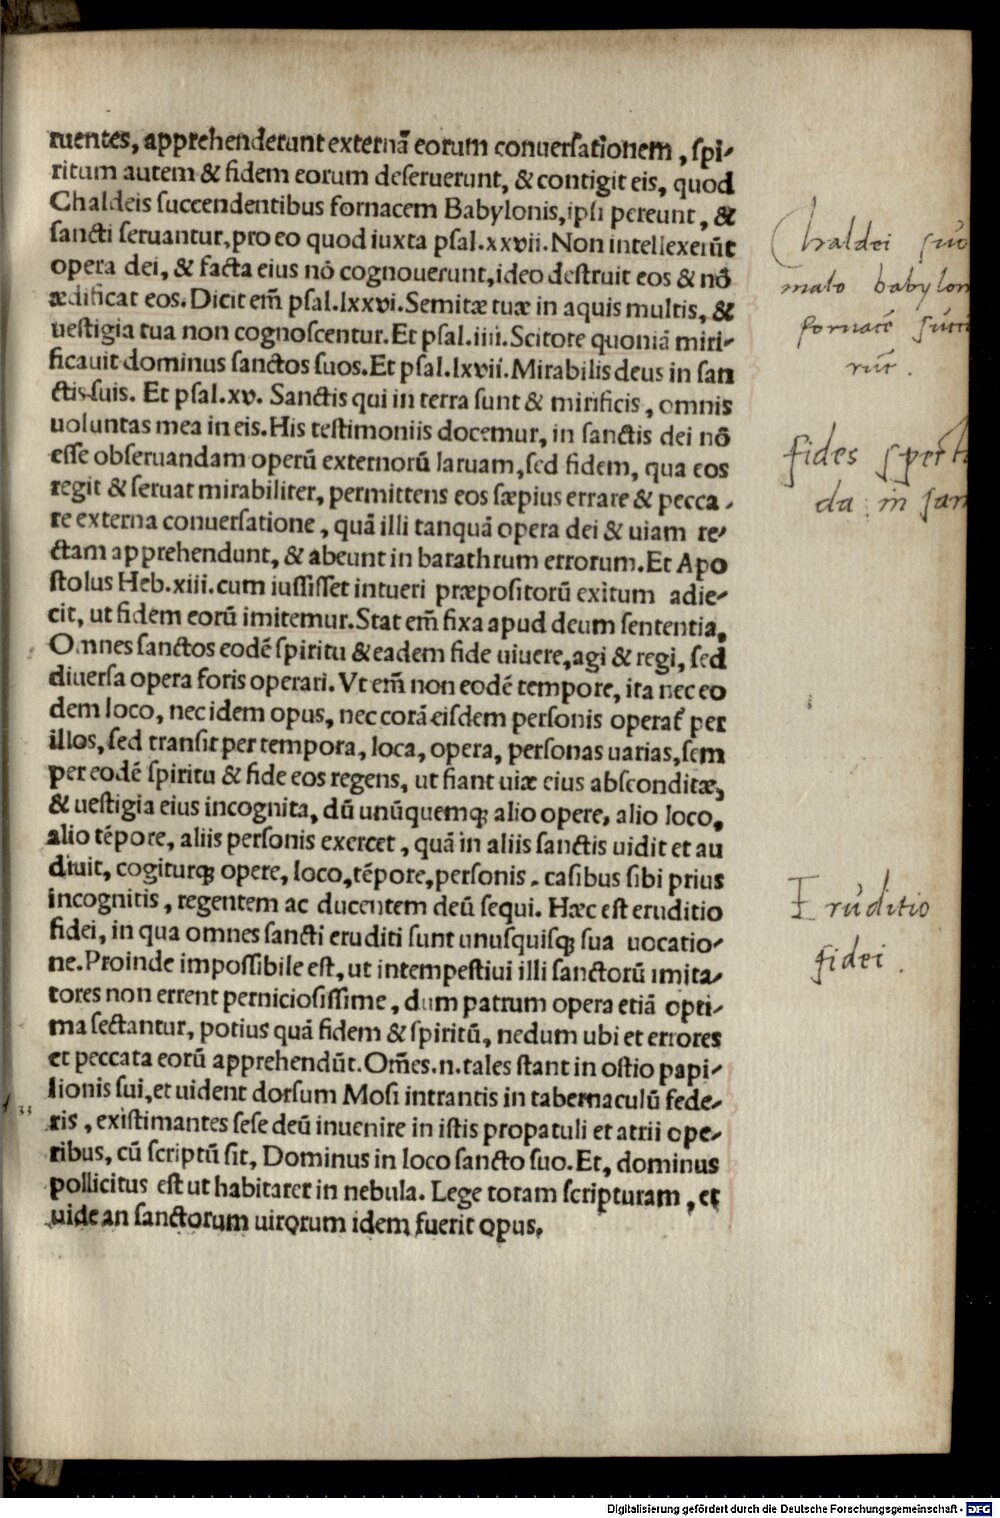 ruentes, apprehenderunt externā eorum conuersationem, spi-
ritum autem & fidem eorum deseruerunt, & contigit eis, quod
Chaldeis succendentibus fornacem Babylonis, ipsi pereunt, &
sancti seruantur, pro eo quod iuxta psal.xxvii. Non intellexerūt
opera dei, & facta eius nō cognouerunt, ideo destruit eos & nō
ædificat eos. Dicit em̄ psal.lxxvi. Semitæ tuæ in aquis multis, &
uestigia tua non cognoscentur. Et psal.iiii. Scitote quoniā miri-
ficauit dominus sanctos suos. Et psal.lxvii. Mirabilis deus in san
ctis suis. Et psal.xv. Sanctis qui in terra sunt & mirificis, omnis
uoluntas mea in eis. His testimoniis docemur, in sanctis dei nō
esse obseruandam operū externorū laruam, sed fidem, qua eos
regit & seruat mirabiliter, permittens eos sæpius errare & pecca-
re externa conuersatione, quā illi tanquā opera dei & uiam re-
ctam apprehendunt, & abeunt in barathrum errorum. Et Apo
stolus Heb.xiii. cum iussisset intueri præpositorū exitum adie-
cit, ut fidem eorū imitemur. Stat em̄ fixa apud deum sententia,
Omnes sanctos eodē spiritu & eadem fide uiuere, agi & regi, sed
diuersa opera foris operari. Vt em̄ non eodē tempore, ita nec eo
dem loco, nec idem opus, nec corā eisdem personis operat᷑ per
illos, sed transit per tempora, loca, opera, personas uarias, sem
per eodē spiritu & fide eos regens, ut fiant uiæ eius absconditæ,
& uestigia eius incognita, dū unūquemqꝫ alio opere, alio loco,
alio tēpore, aliis personis exercet, quā in aliis sanctis uidit et au
diuit, cogiturqꝫ opere, loco, tēpore, personis, casibus sibi prius
incognitis, regentem ac ducentem deū sequi. Hæc est eruditio
fidei, in qua omnes sancti eruditi sunt unusquisqꝫ sua uocatio-
ne. Proinde impossibile est, ut intempestiui illi sanctorū imita-
tores non errent perniciosissime, dum patrum opera etiā opti-
ma sectantur, potius quā fidem & spiritū, nedum ubi et errores
et peccata eorū apprehendūt. Om̄es.n.tales stant in ostio papi-
lionis sui, et uident dorsum Mosi intrantis in tabernaculū fede-
ris, existimantes sese deū inuenire in istis propatuli et atrii ope-
ribus, cū scriptū sit, Dominus in loco sancto suo. Et, dominus
pollicitus est ut habitaret in nebula. Lege totam scripturam, et
uide an sanctorum uirorum idem fuerit opus.
Chaldei suo
malo babylon
fornacē succ
rūt.
fides spect
da in san
Eruditio
fidei.
Digitalisierung gefördert durch die Deutsche Forschungsgemeinschaft - DFG